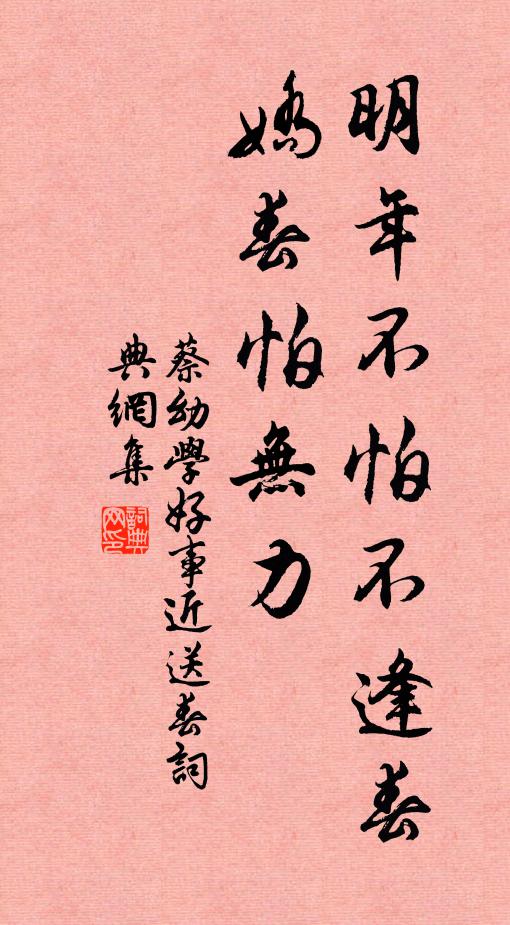 明年不怕不逢春
嬌春怕無力
蔡幼學好事近送春詞
典網集
詞典網印